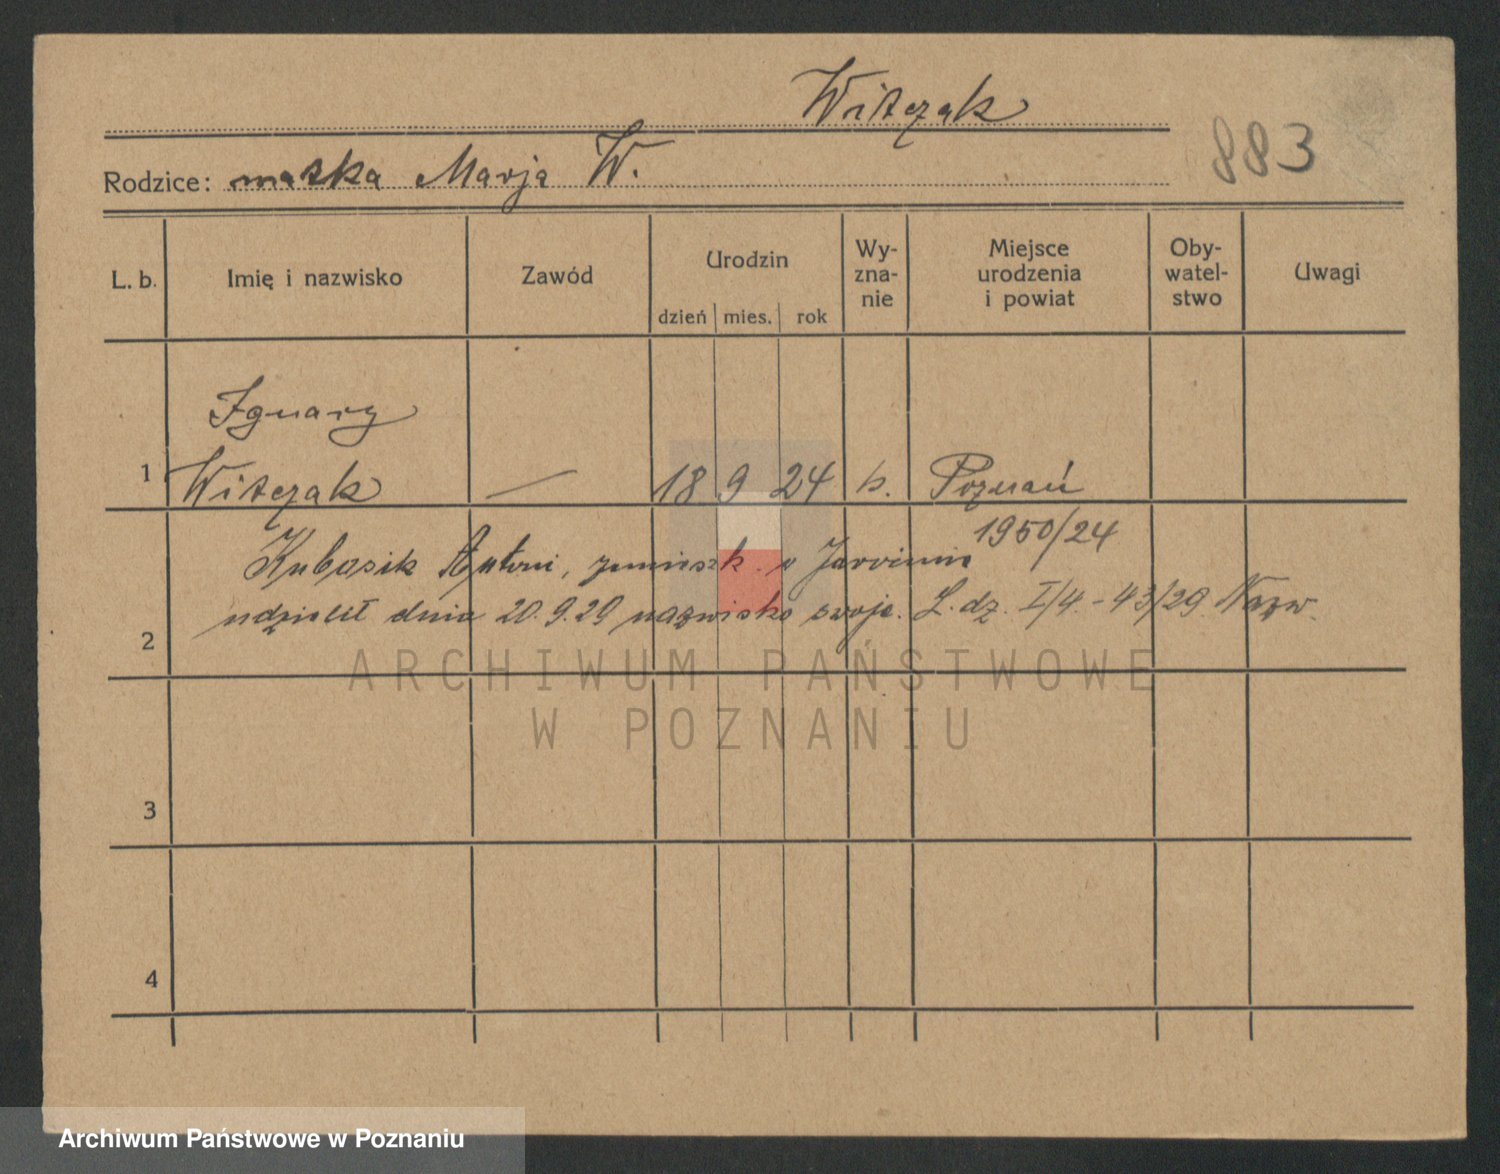 Witczak
883
Rodzice: matka Marja W.
L. b. Imię i nazwisko Zawód Urodzin dzień mies. rok Wy-zna-nie Miejsce urodzenia i powiat Oby-watel-stwo Uwagi
Ignacy
1 Witczak — 18 9 24 k. Poznań
1950/24
Kubasik Antoni, zamieszk. w
udzielił dnia 20.9.29 nazwisko swoje. L. dz. I/4.-43/29 Nazw.
2
ARCHIWUM PAŃSTWOWE
W POZNANIU
3
4
Archiwum Państwowe w Poznaniu